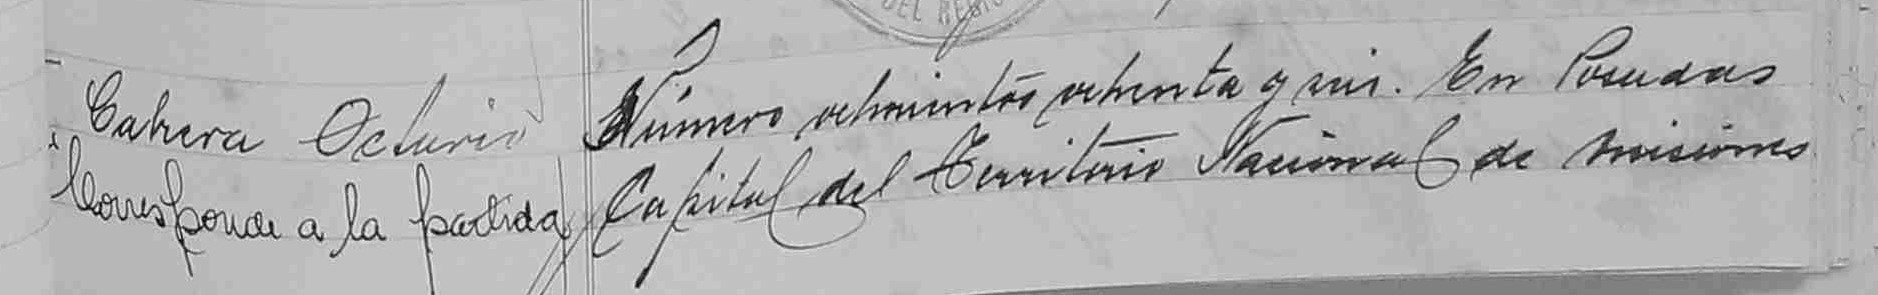 DEL REGIS
Cabrera Octavio
Número ochocientos ochenta y seis. En Posadas
Corresponde a la partida
Capital del Territorio Nacional de Misiones